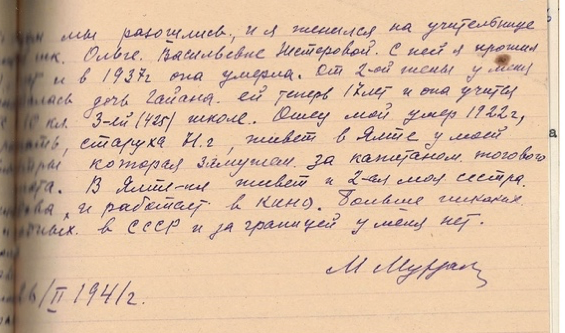 мы разошлись, и я женился на учительнице
Ольге Васильевне Нестеровой. С ней я прожил
и в 1937г она умерла. От 2-ой жены у меня
лась дочь Гаяна. ей теперь 17 лет и она учится
10 кл. 3-ей (425) школе. Отец мой умер 1922г,
старуха 71 г, живет в Ялте у моей
которая замужем за капитаном торгового
В Ялте-же живет и 2-ая моя сестра.
и работает в кино. Больше никаких
в СССР и за границей у меня нет.
6/II 1941г.